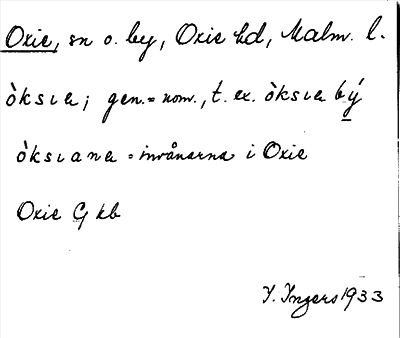 Oxie, sn o. by, Oxie hd, Malm. l.
òksıa; gen. = nom., t. ex. òksıa bý
òksıana = invånarna i Oxie
Oxie G kb
I. Ingers 1933